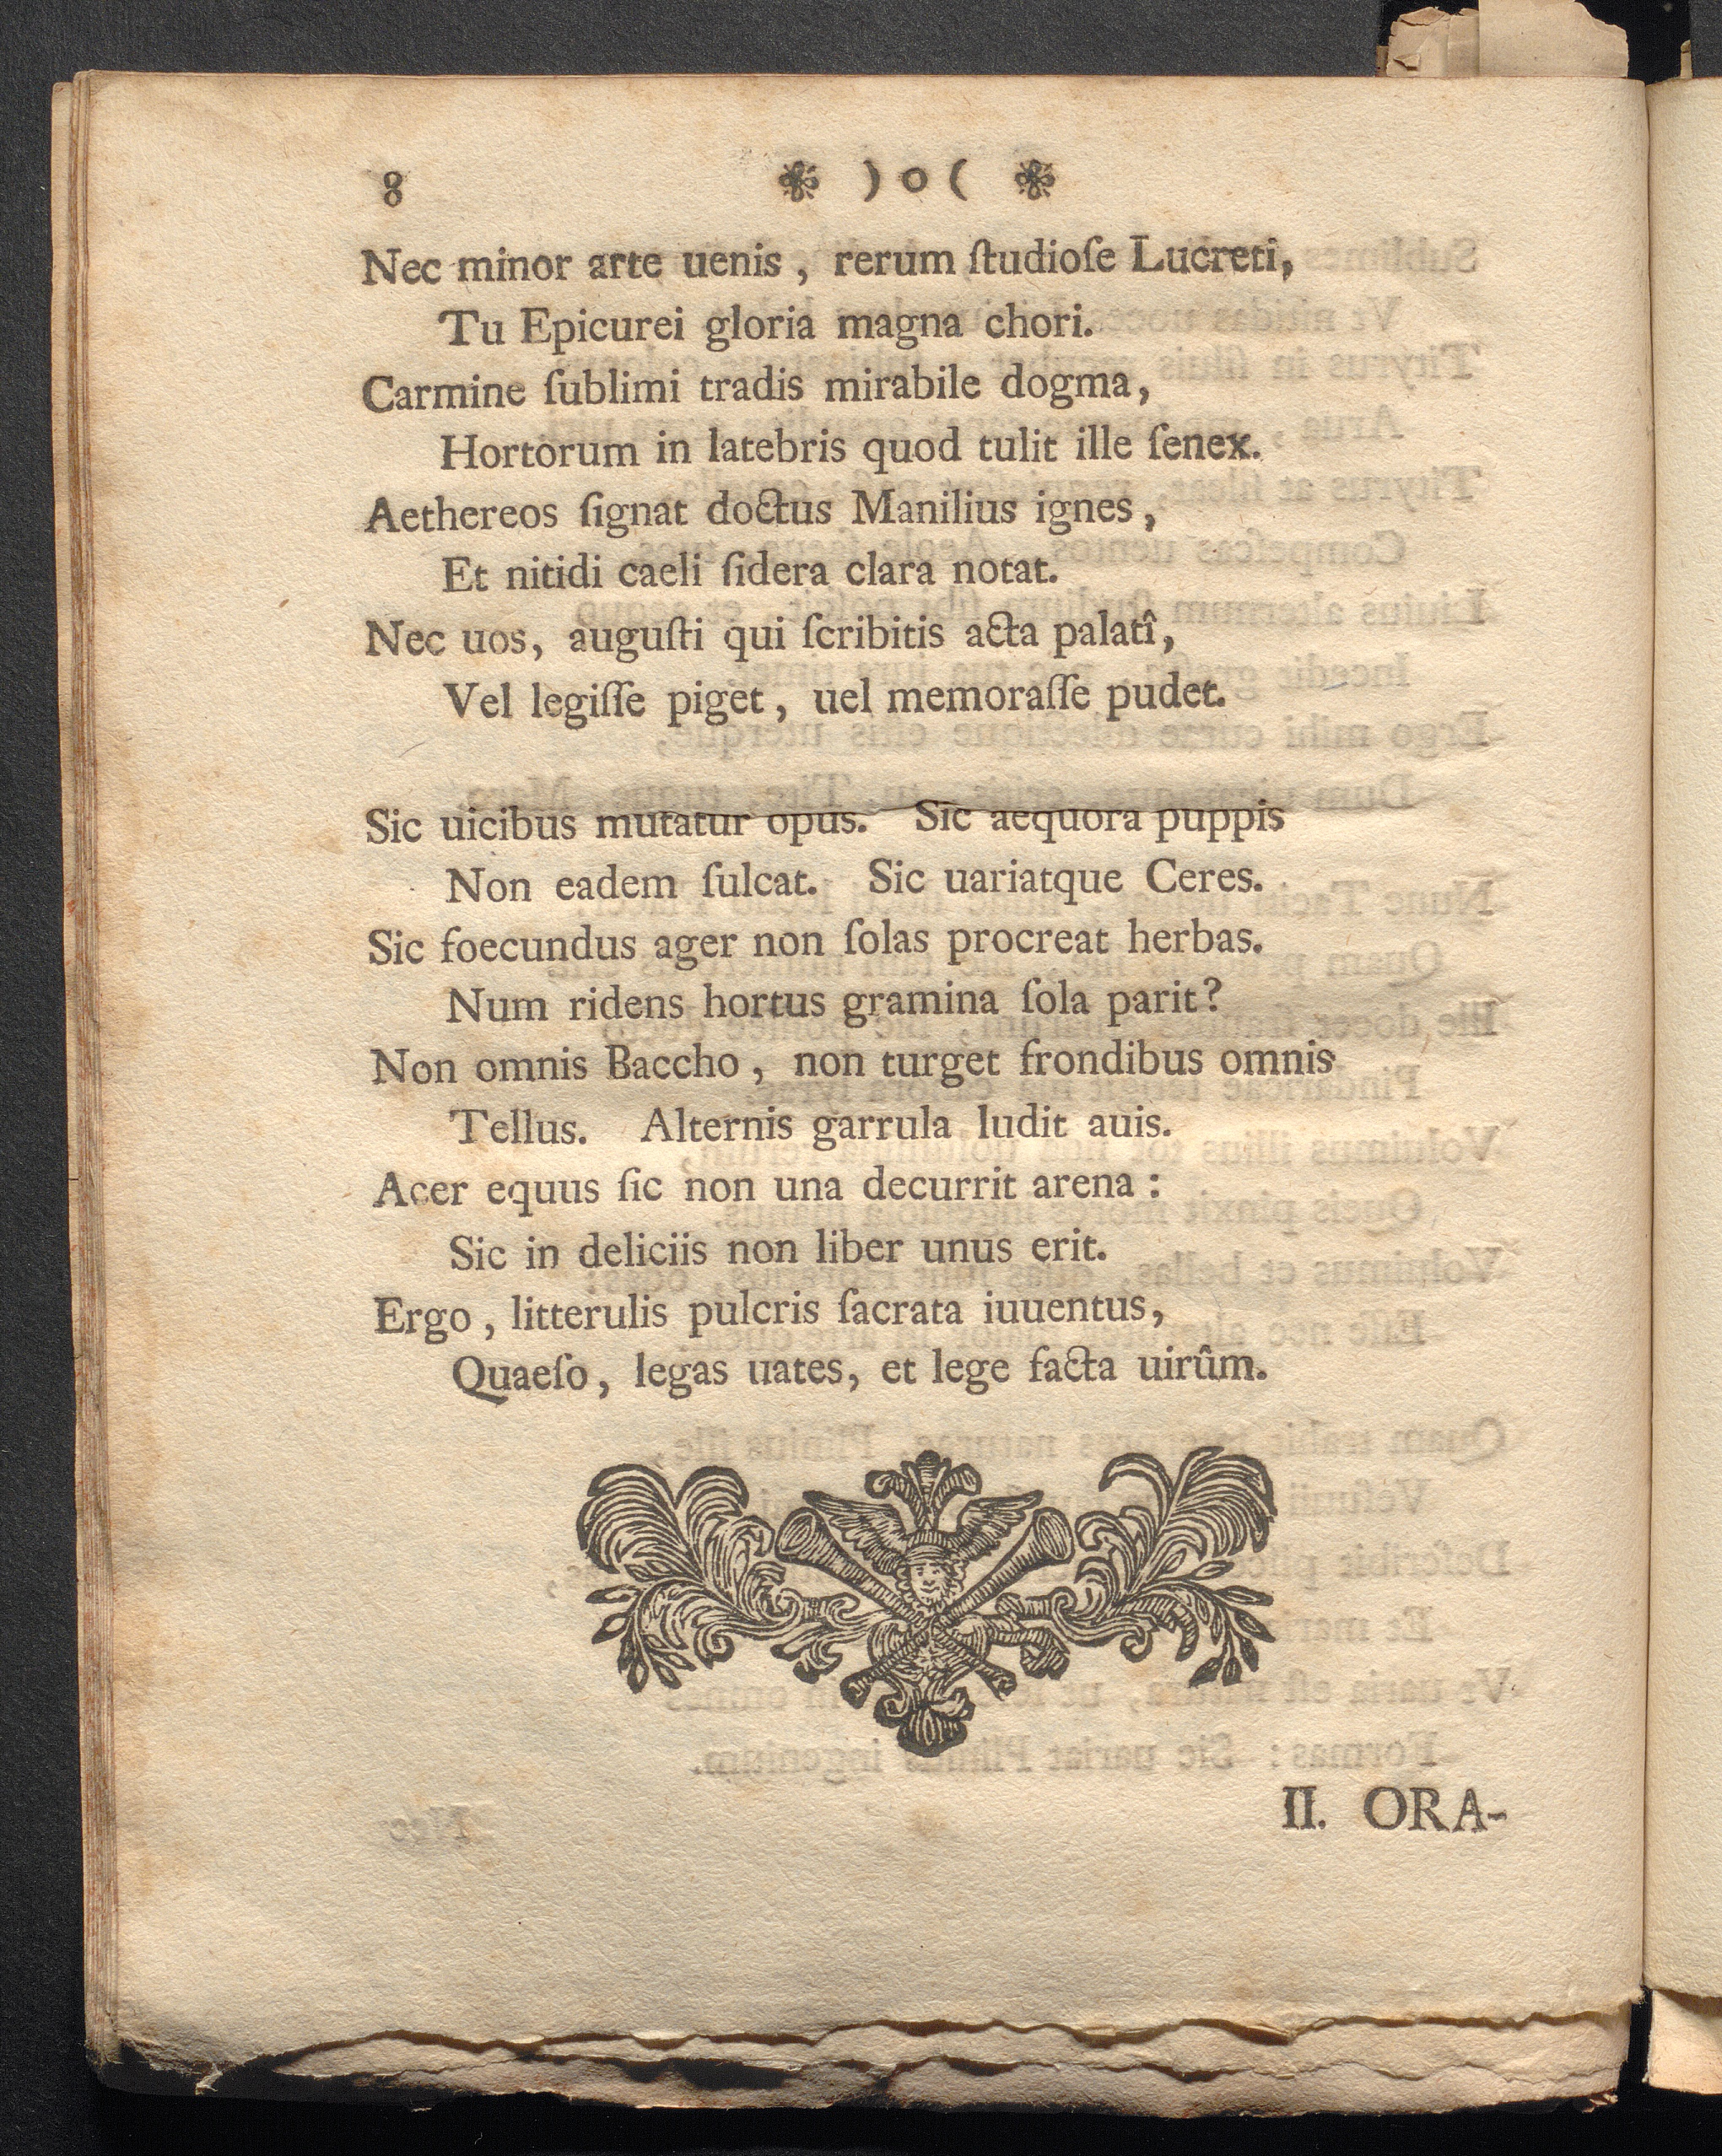 8 ❃ ) o ( ❃
Nec minor arte uenis, rerum ſtudioſe Lucreti,
Tu Epicurei gloria magna chori.
Carmine ſublimi tradis mirabile dogma,
Hortorum in latebris quod tulit ille ſenex.
Aethereos ſignat doctus Manilius ignes,
Et nitidi caeli ſidera clara notat.
Nec uos, auguſti qui ſcribitis acta palatî,
Vel legiſſe piget, uel memoraſſe pudet.
Sic uicibus mutatur opus. Sic aequora puppis
Non eadem ſulcat. Sic uariatque Ceres.
Sic foecundus ager non ſolas procreat herbas.
Num ridens hortus gramina ſola parit?
Non omnis Baccho, non turget frondibus omnis
Tellus. Alternis garrula ludit auis.
Acer equus ſic non una decurrit arena:
Sic in deliciis non liber unus erit.
Ergo, litterulis pulcris ſacrata iuuentus,
Quaeſo, legas uates, et lege facta uirûm.
II. ORA-